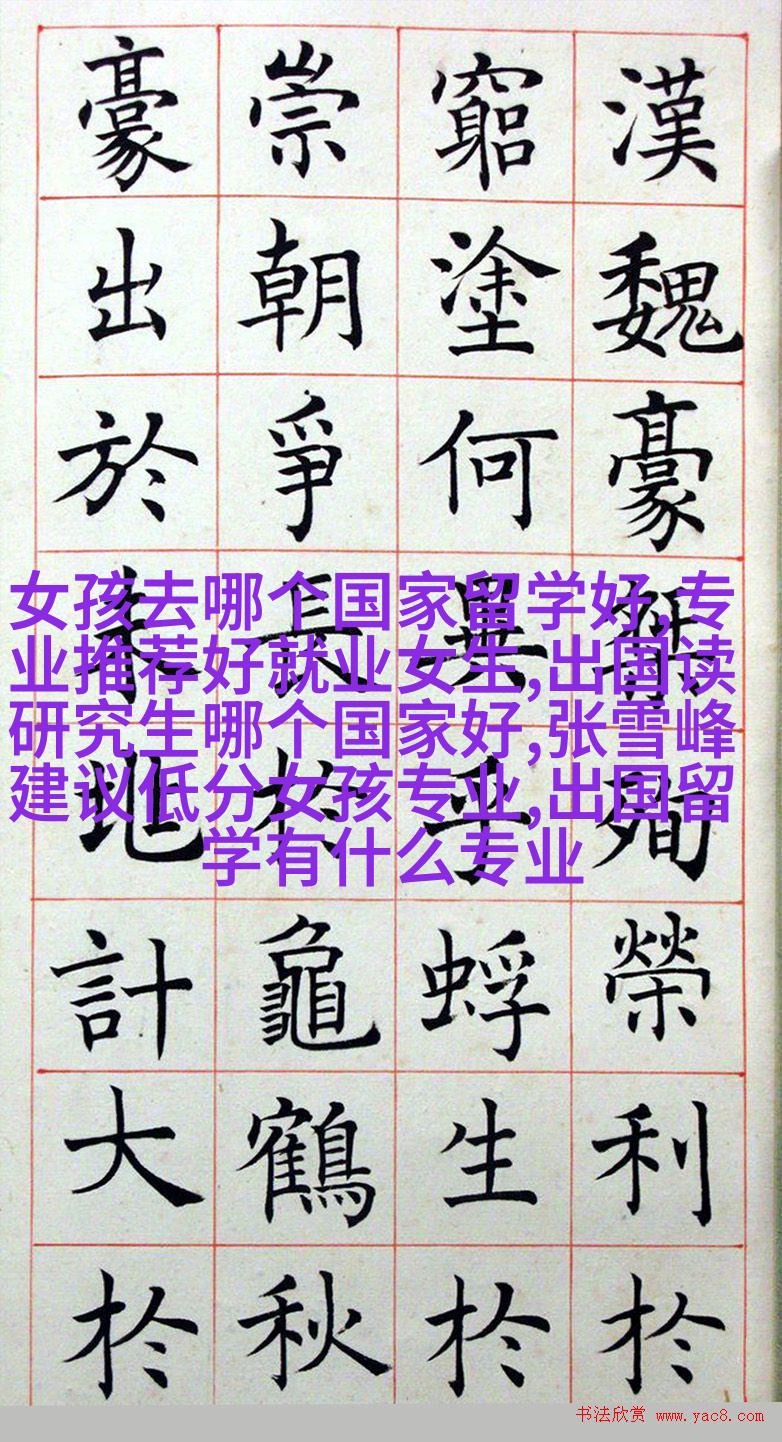 漢魏豪殉榮利扵
窮塗何異乎蜉生扵
崇朝爭長扵龜鶴秋
豪出於地計大扵
女孩去哪个国家留学好,专
业推荐好就业女生,出国读
研究生哪个国家好,张雪峰
建议低分女孩专业,出国留
学有什么专业
书法欣赏 www.yac8.com